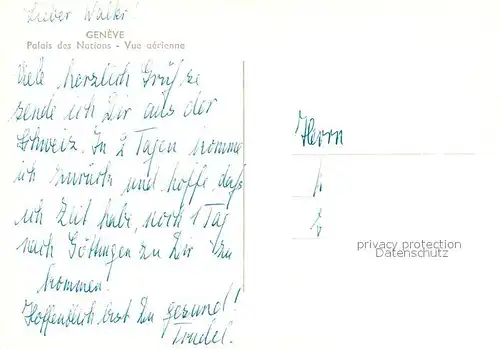 Lieber Walter!
GENÈVE
Palais des Nations - Vue aérienne
Viele herzlich Grüsze
sende ich Dir aus der
Schweiz. In 2 Tagen komme
ich zurück und hoffe, daß
ich Zeit habe, noch 1 Tag
nach Göttingen zu Dir zu
kommen!
Hoffentlich bist Du gesund!
Trudel.
Herrn
privacy protection
Datenschutz